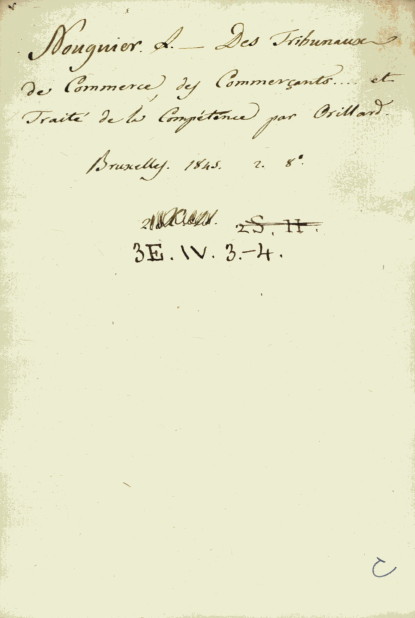 Nouguier. L. — Des Tribunaux
de Commerce, des Commerçants.... et
Traité de la Compétence par Orillard.
Bruxelles. 1845. 2. 8°.
2S. 11.
3E. IV. 3.-4.